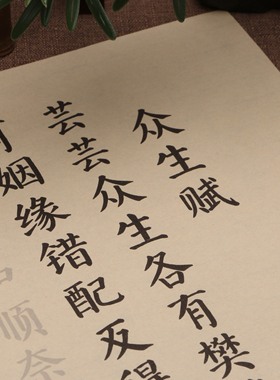 众生赋
芸芸众生各有樊
姻缘错配反得
顺奈